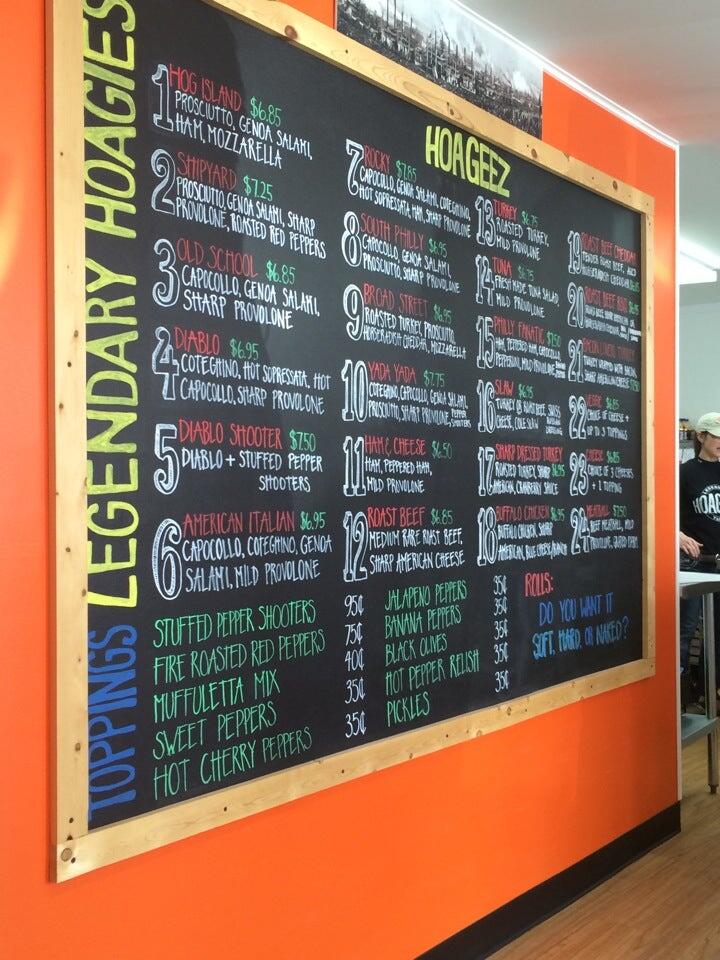 LEGENDARY HOAGIES
HOAGEEZ
1 HOG ISLAND $6.85
PROSCIUTTO, GENOA SALAMI,
HAM, MOZZARELLA
2 SHIPYARD $7.25
PROSCIUTTO, GENOA SALAMI, SHARP
PROVOLONE, ROASTED RED PEPPERS
3 OLD SCHOOL $6.85
CAPOCOLLO, GENOA SALAMI,
SHARP PROVOLONE
4 DIABLO $6.95
COTEGHINO, HOT SOPRESSATA, HOT
CAPOCOLLO, SHARP PROVOLONE
5 DIABLO SHOOTER $7.50
DIABLO + STUFFED PEPPER
SHOOTERS
6 AMERICAN ITALIAN $6.95
CAPOCOLLO, COTEGHINO, GENOA
SALAMI, MILD PROVOLONE
7 ROCKY $7.85
CAPOCOLLO, GENOA SALAMI, COTEGHINO,
HOT SOPRESSATA, HAM, SHARP PROVOLONE
8 SOUTH PHILLY $6.95
CAPOCOLLO, GENOA SALAMI,
PROSCIUTTO, SHARP PROVOLONE
9 BROAD STREET $6.95
ROASTED TURKEY, PROSCIUTTO,
HORSERADISH CHEDDAR, MOZZARELLA
10 YADA YADA $7.75
COTEGHINO, CAPOCOLLO, GENOA SALAMI,
PROSCIUTTO, SHARP PROVOLONE, PEPPER SHOOTERS
11 HAM & CHEESE $6.50
HAM, PEPPERED HAM,
MILD PROVOLONE
12 ROAST BEEF $6.85
MEDIUM RARE ROAST BEEF,
SHARP AMERICAN CHEESE
13 TURKEY $6.75
ROASTED TURKEY,
MILD PROVOLONE
14 TUNA
FRESH MADE TUNA SALAD,
MILD PROVOLONE
15 PHILLY FANATIC $7.50
HAM, PEPPERED HAM, CAPOCOLLO,
PEPPERONI, MILD PROVOLONE
16 SLAW $6.95
TURKEY OR ROAST BEEF, SWISS
CHEESE, COLE SLAW
17 SHARP DRESSED TURKEY
ROASTED TURKEY, SHARP $6.95
AMERICAN, CRANBERRY SAUCE
18 BUFFALO CHICKEN $6.95
BUFFALO CHICKEN, SHARP
AMERICAN, BLUE CHEESE
19 ROAST BEEF CHEDDAR
TENDER ROAST BEEF, AND
HORSERADISH CHEDDAR
20 ROAST BEEF
21 TURKEY
22 VEGGIE $6.85
CHOICE OF CHEESE +
UP TO 3 TOPPINGS
23 CHEESE $6.85
CHOICE OF 3 CHEESES
+ 1 TOPPING
24 MEATBALL $7.50
BEEF MEATBALL, MILD
PROVOLONE
TOPPINGS
STUFFED PEPPER SHOOTERS 95¢
FIRE ROASTED RED PEPPERS 75¢
MUFFULETTA MIX 40¢
SWEET PEPPERS 35¢
HOT CHERRY PEPPERS 35¢
JALAPENO PEPPERS 35¢
BANANA PEPPERS 35¢
BLACK OLIVES 35¢
HOT PEPPER RELISH 35¢
PICKLES 35¢
ROLLS:
DO YOU WANT IT
SOFT, HARD, OR NAKED?